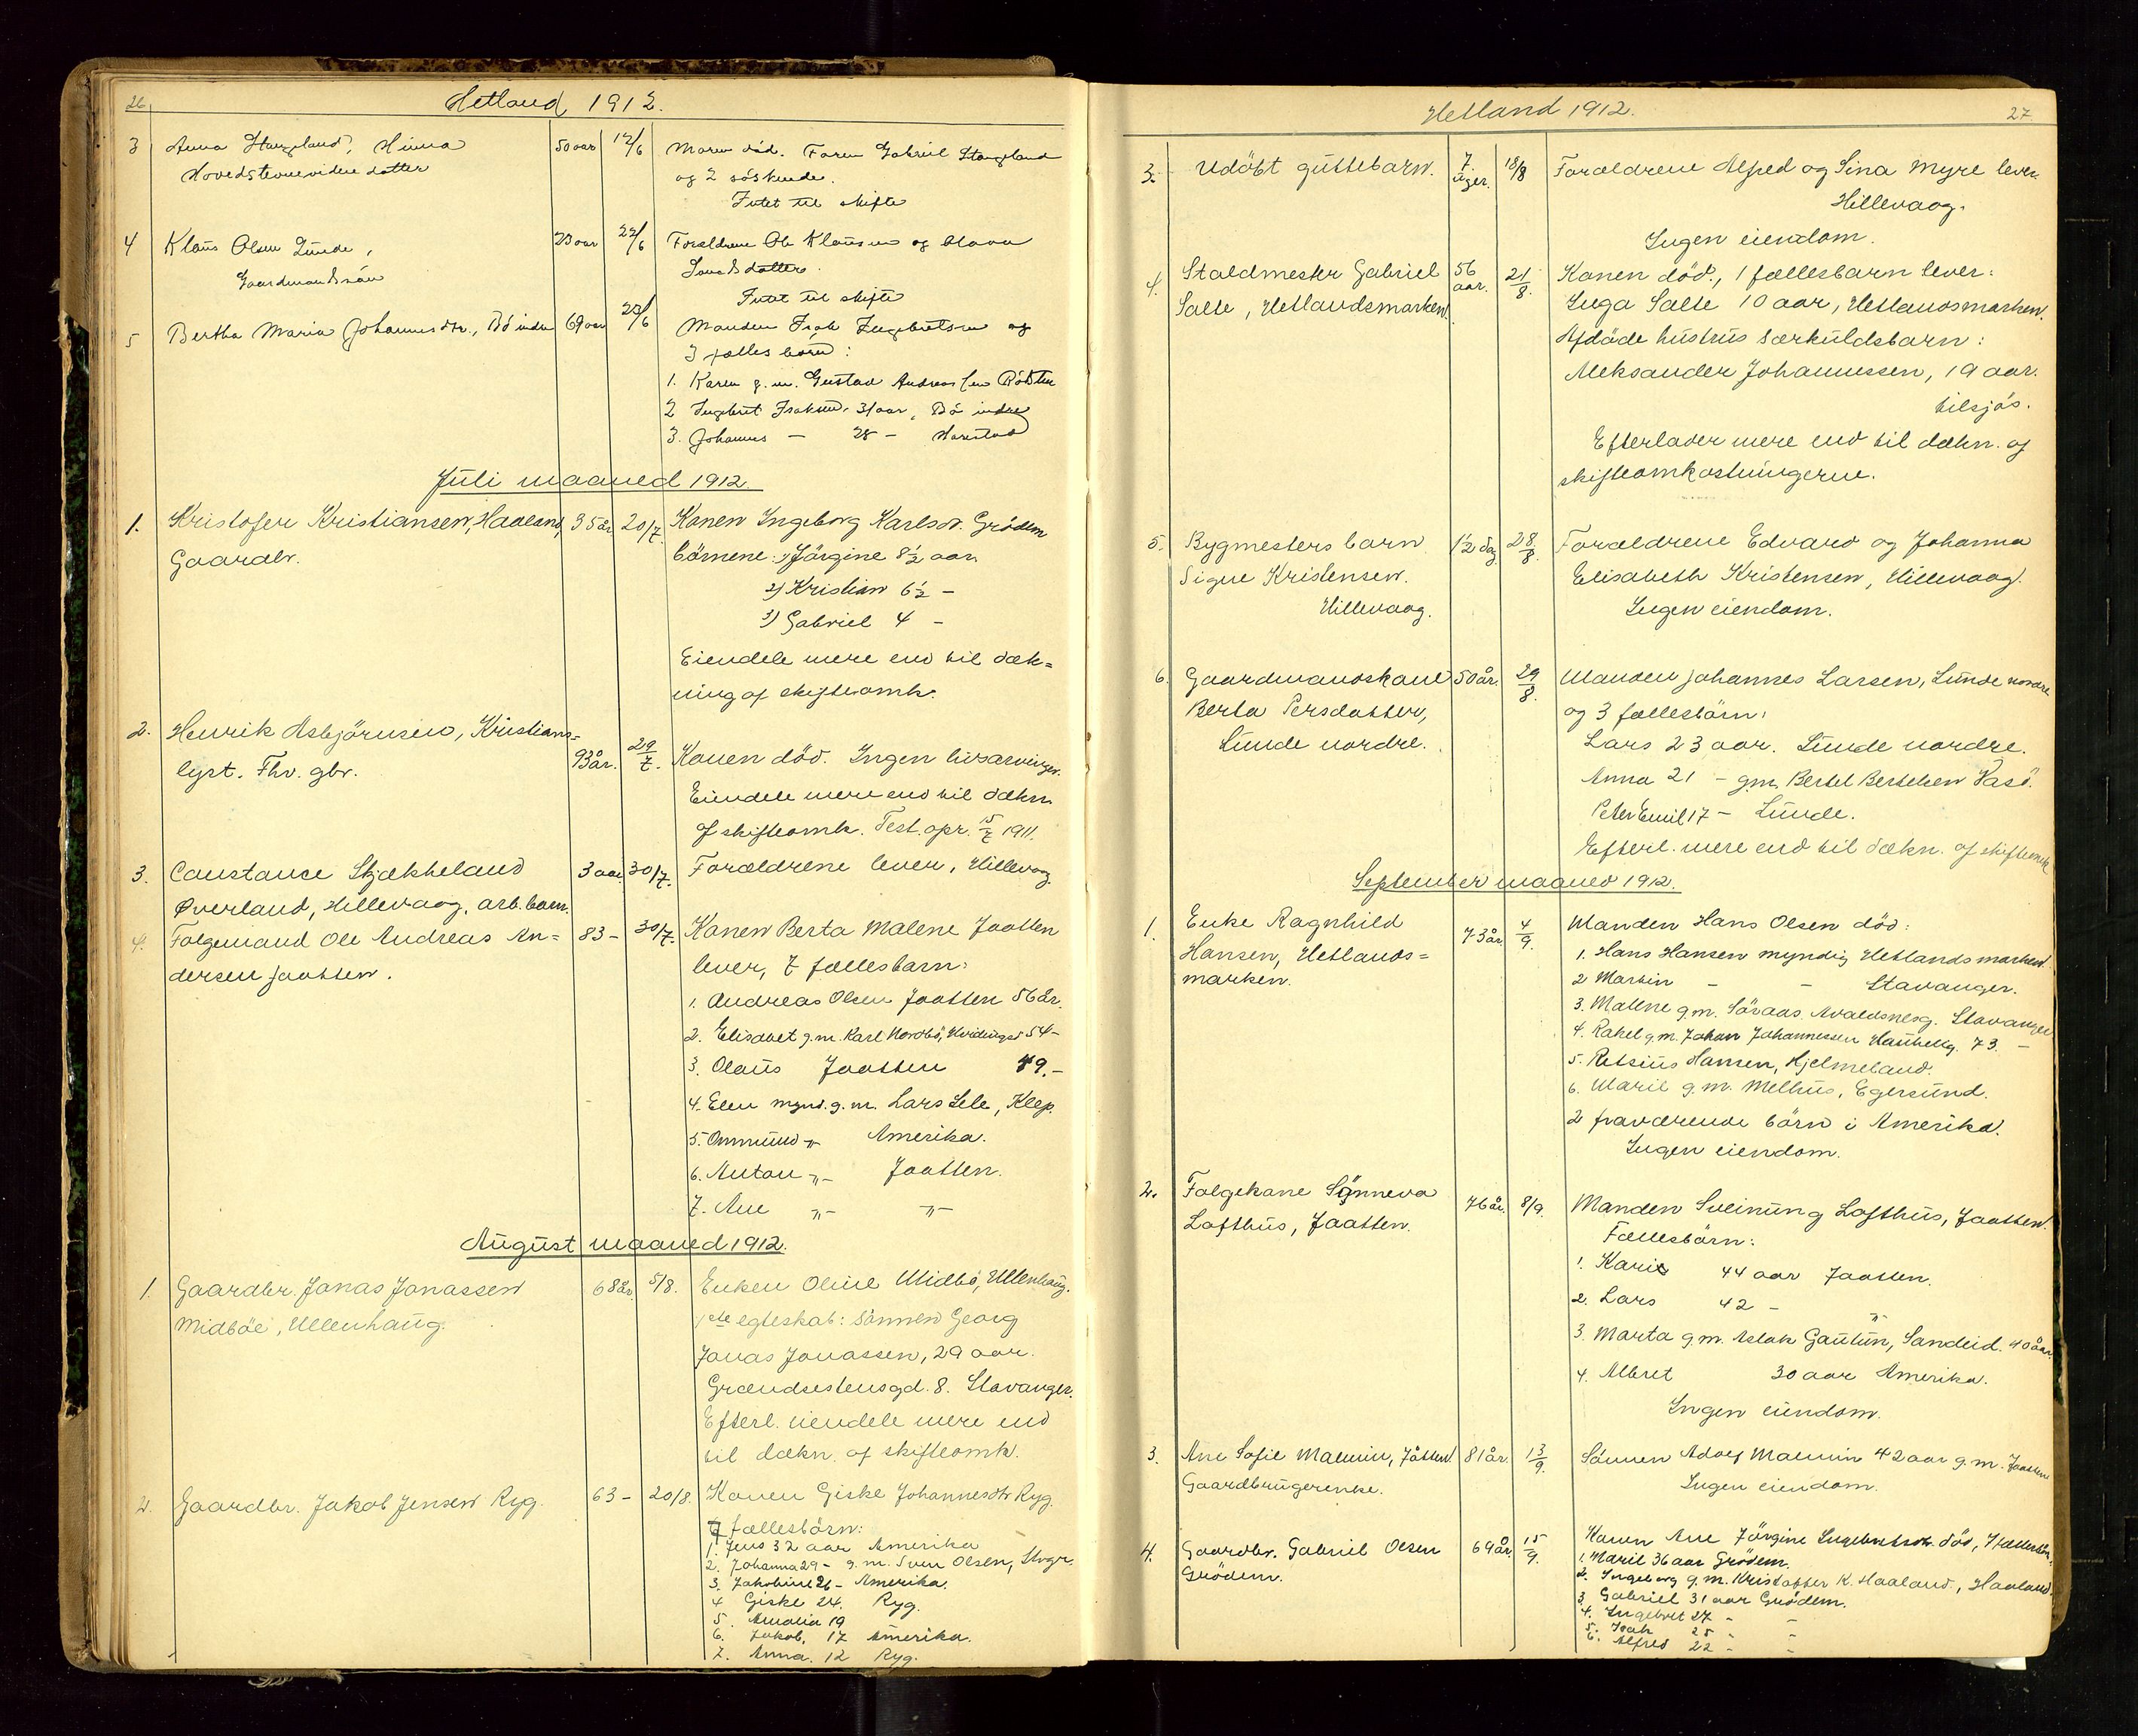 26
Hetland 1912.
3 Anna Stangeland, Hinna 50 aar 12/6 Moren död. Faren Gabriel Stangeland
datter og 2 söskende.
Intet til skifte
4 Klaus Olsen Lunde, 23 aar 22/6 Forældrene Ole Klausen og
Gaardmandssön
Intet til skifte
5 Bertha Maria Johannesdtr., Bö indre 69 aar 23/6 Manden Isak Ingebretsen og
3 fælles börn:
1. Karen g.m. Gustav Andreassen
2 Ingebret Isaksen 31 aar, Bö indre
3. Johannes — 28 — Harestad
Juli maaned 1912.
1. Kristofer Kristiansen, Haaland, 35 år 20/7. Konen Ingeborg Karlsdr. Grödem
Gaardbr. börnene: 1) Jörgine 8½ aar
2) Kristian 6½ —
3) Gabriel 4 —
Eiendele mere end til dæk=
ning af skifteomk.
2. Henrik Asbjörnsen, Kristians= 93 år. 29/7. Konen död. Ingen livsarvinger.
lyst. Fhv. gbr. Eiendele mere end til dækn.
af skifteomk. Test. opr. 15/7 1911.
3. Constance Skjækheland 3 aar 30/7. Forældrene lever, Hillevaag.
Øverland, Hillevaag, arb. barn.
4. Folgemand Ole Andreas An= 83 — 30/7. Konen Berta Malene Jaatten
dersen Jaatten. lever, 7 fællesbarn:
1. Andreas Olsen Jaatten 56 år.
2. Elisabet g.m. Karl Nordbö, Hvidingsö 54 —
3. Olaus Jaatten 49. —
4. Elen mynd. g.m. Lars Lele, Klep.
5. Ommund —"— Amerika.
6. Anton —"— Jaatten.
7. Ane —"— —"—
August maaned 1912.
1. Gaardbr. Jonas Jonassen 68 år 5/8. Enken Oline Midbö, Ullenhaug.
Midböe, Ullenhaug. 1ste egteskab: Sönnen Georg
Jonas Jonassen, 29 aar.
Grændsestensgd. 8. Stavanger.
Efterl. eiendele mere end
til dækn. af skifteomk.
2. Gaardbr. Jakob Jensen Ryg. 63 — 20/8. Konen Giske Johannesdtr Ryg.
7 fællesbörn:
1. Jens 32 aar Amerika
2. Johanna 29 — g.m. Sven Olsen, Stvgr.
3. Jakobine 26 — Amerika.
4 Giske 24. Ryg.
5. Amalia 19
6. Jakob. 17 Amerika.
7. Anna. 12 Ryg.
Hetland 1912.
27.
3. Udöbt guttebarn. 7. uger. 18/8 Forældrene Alfred og Sina Myre lever.
Hillevaag.
Ingen eiendom.
4. Staldmester Gabriel 56 aar. 21/8. Konen död, 1 fællesbarn lever:
Salte, Hetlandsmarken. Inga Salte 10 aar, Hetlandsmarken.
Afdöde hustrus særkuldsbarn:
Aleksander Johannessen, 19 aar.
tilsjös.
Efterlader mere end til dækn. af
skifteomkostningerne.
5. Bygmesters barn 1½ dag 28/8. Forældrene Edvard og Johanna
Signe Kristensen. Elisabeth Kristensen, Hillevaag.
Hillevaag. Ingen eiendom.
6. Gaardmandskone 50 år. 29/8. Manden Johannes Larsen, Lunde nordre
Berta Persdatter, og 3 fællesbörn:
Lunde nordre. Lars 23 aar. Lunde nordre.
Anna 21 — g.m. Bertel Bertelsen Vasö.
Peter Emil 17 — Lunde.
Efterl. mere end til dækn. af skifteomk
September maaned 1912.
1. Enke Ragnhild 73 år. 4/9. Manden Hans Olsen död:
Hansen, Hetlands= 1. Hans Hansen myndig Hetlandsmarken.
marken. 2 Martin — — Stavanger.
3. Malene g.m. Sövaas, Avaldsnesg. Stavanger
4. Rakel g.m. Johan Johannessen Haukelig. 73. —
5. Retsius Hansen, Hjelmeland.
6. Marie g.m. Melhus, Egersund.
2 fraværende börn i Amerika.
Ingen eiendom.
2. Folgekone Sönneva 76 år. 8/9. Manden Sveinung Lofthus, Jaatten.
Lofthus, Jaatten. Fællesbörn:
1. Kari 44 aar Jaatten.
2. Lars 42 — "
3. Marta g.m. Aslak Gautun, Sandeid. 40 aar.
4. Albret 30 aar Amerika.
Ingen eiendom.
3. Ane Sofie Malmin, Jåtten. 81 år. 13/9. Sönnen Adolf Malmin 42 aar g.m. Jaatten
Gaardbrugerenke. Ingen eiendom.
4. Gaardbr. Gabriel Olsen 69 år. 15/9. Konen Ane Jörgine Ingebretsdtr. död,
Grödem. 1. Marie 36 aar Grödem.
2. Ingeborg g.m. Kristoffer K. Haaland, Haaland.
3. Gabriel 31 aar Grödem.
4. Ingebret 27 — —
5. Isak 25 — —
6. Alfred 22 — —